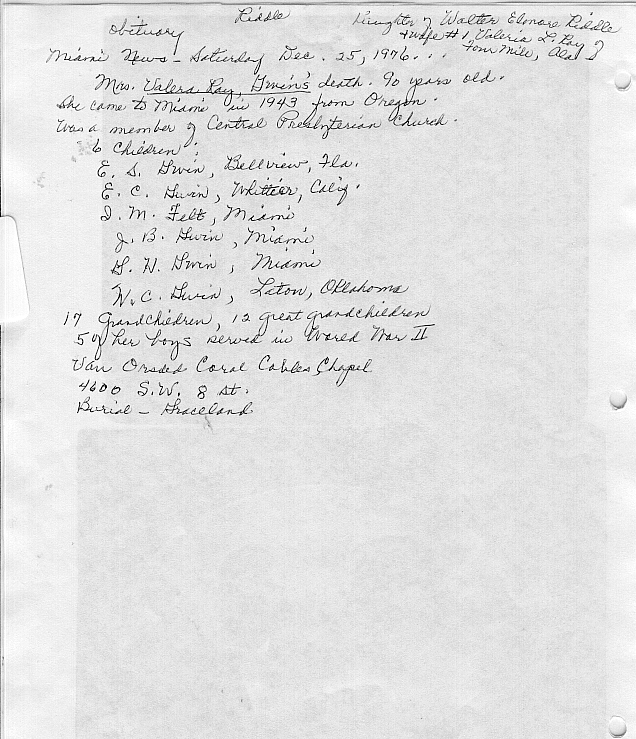 Obituary
Riddle
Daughter of Walter Elmore Riddle
+ wife #1, Valeria L. Ray of
Four Mile, Ala
Miami News - Saturday Dec. 25, 1976...
Mrs. Valera Ray, Irwin's death. 90 years old.
She came to Miami in 1943 from Oregon.
Was a member of Central Presbyterian Church.
6 Children:
E. S. Irwin, Bellview, Fla.
E. C. Irwin, Whitteer, Calif.
D. M. Felt, Miami
J. B. Irwin, Miami
G. H. Irwin, Miami
W. C. Irwin, Laton, Oklahoma
17 Grandchildren, 12 great grandchildren
5 of her boys served in World War II
Van Orsded Coral Cables Chapel
4600 S.W. 8 st.
Burial - Graceland